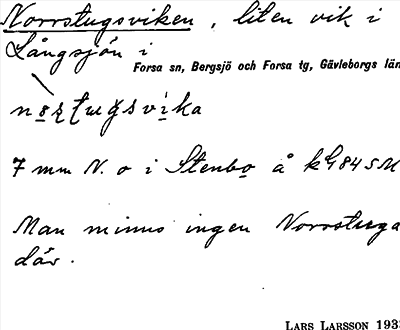 Norrstugsviken, liten vik i
Långsjön i
Forsa sn, Bergsjö och Forsa tg, Gävleborgs län
7 mm N. o i Stenbo å kbl 84 SM
Man minns ingen Norrstuga
där.
LARS LARSSON 193